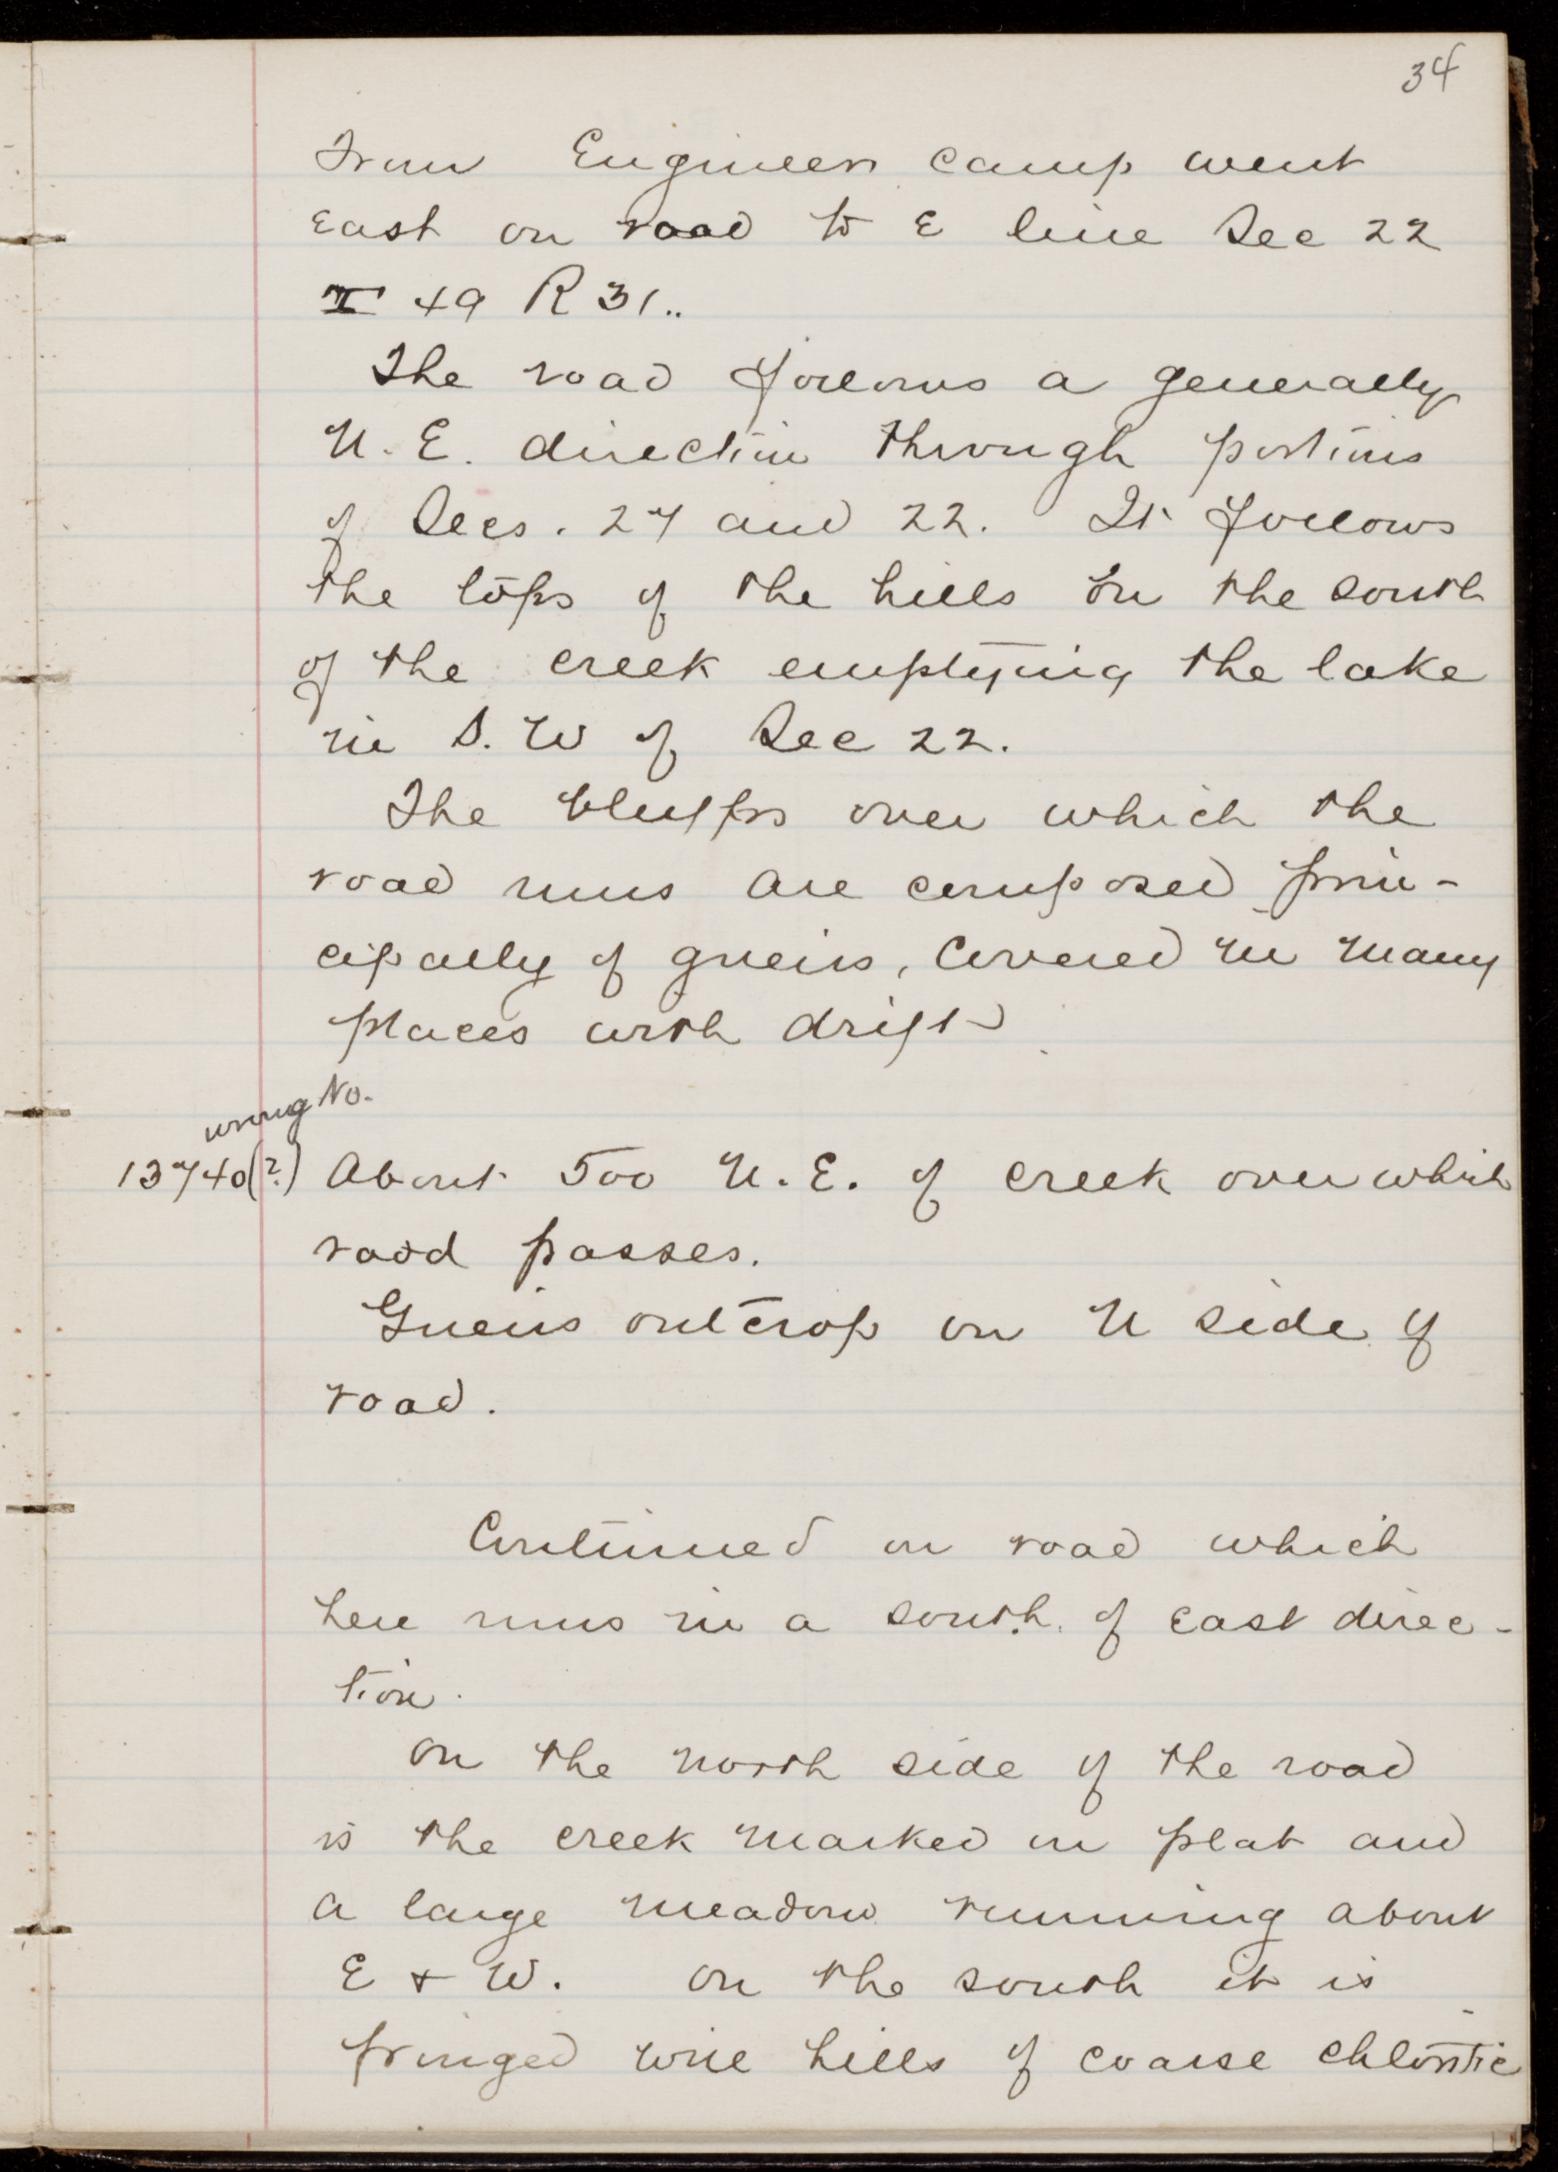 34
From Engineers camp went
East on road to E line Sec 22
T 49 R 31..
The road follows a generally
N. E. direction through portions
of Secs. 27 and 22. It follows
the tops of the hills on the south
of the creek emptying the lake
in S. W of Sec 22.
The bluffs over which the
road runs are composed prin-
cipally of gneiss, covered in many
places with drift
wrong No.
13740(?) About 500 N. E. of creek over which
road passes.
Gneiss outcrop on N side of
road.
Continued on road which
here runs in a south of east direc-
tion.
On the north side of the road
is the creek marked on plat and
a large meadow running about
E + W. On the south it is
fringed with hills of coarse chloritic